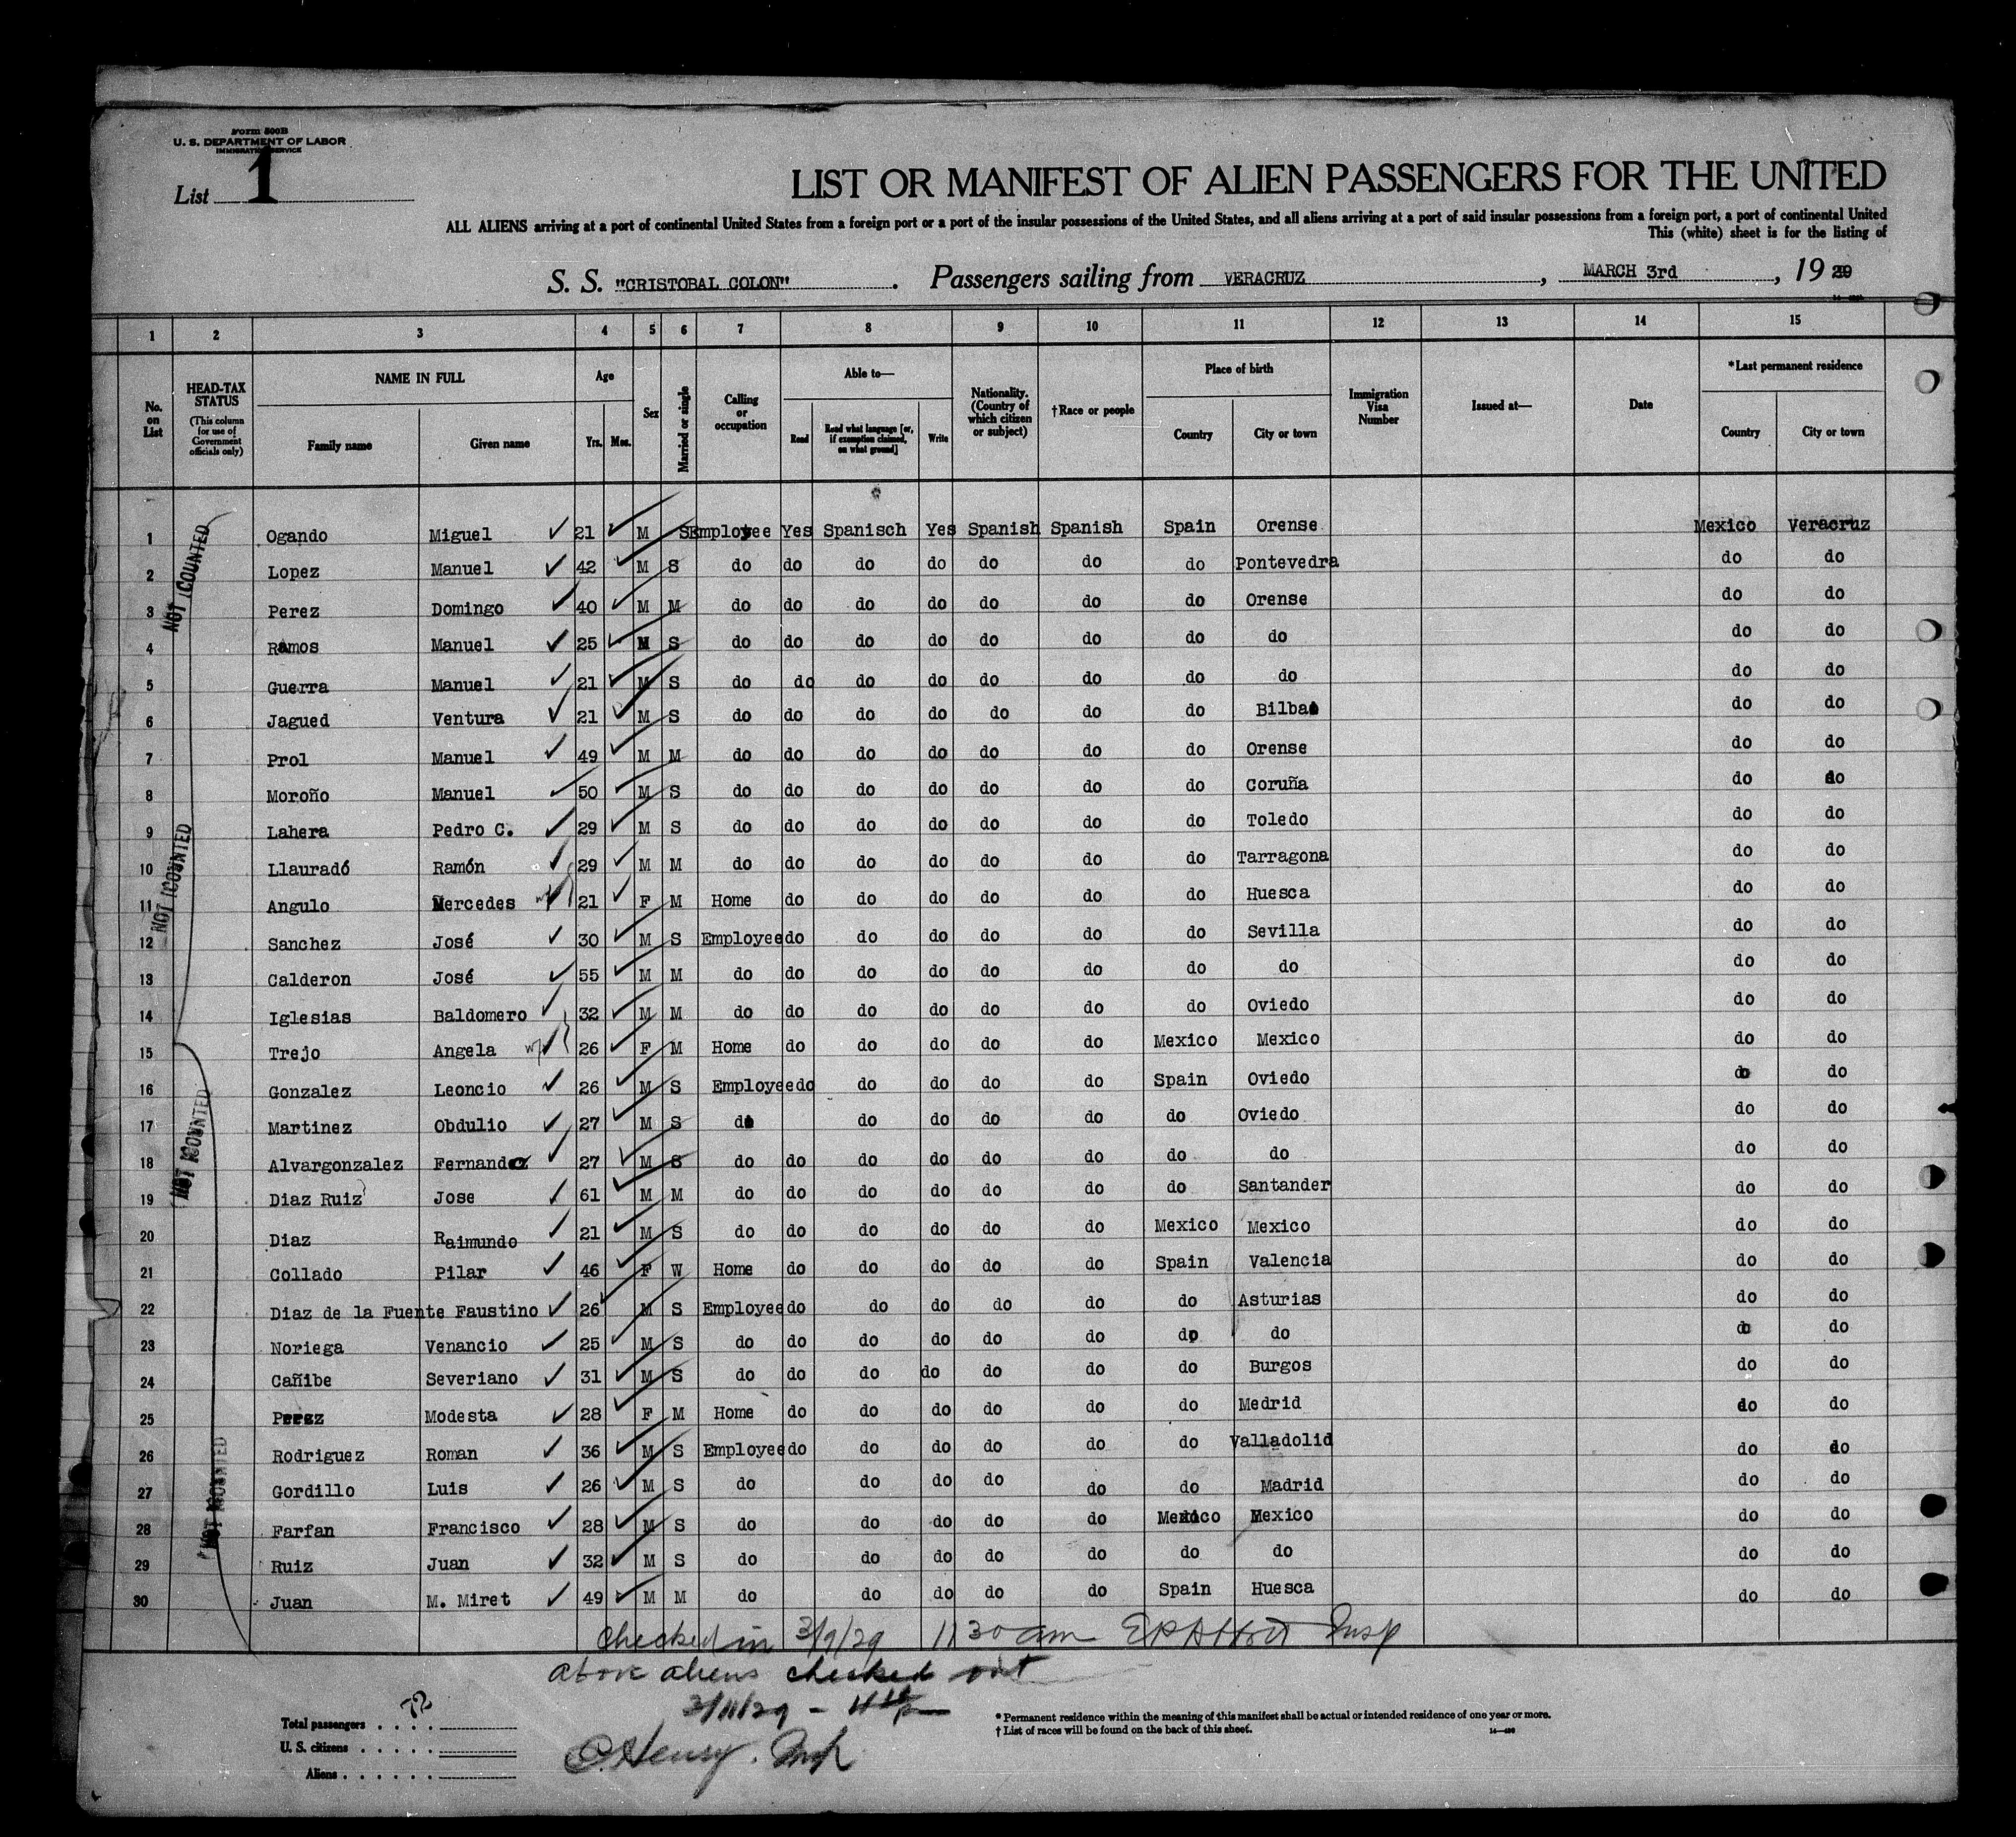 Form 500B
U. S. DEPARTMENT OF LABOR
IMMIGRATION SERVICE
List 1
LIST OR MANIFEST OF ALIEN PASSENGERS FOR THE UNITED
ALL ALIENS arriving at a port of continental United States from a foreign port or a port of the insular possessions of the United States, and all aliens arriving at a port of said insular possessions from a foreign port, a port of continental United
This (white) sheet is for the listing of
S. S. "CRISTOBAL COLON" . Passengers sailing from VERACRUZ , MARCH 3rd , 19 29
1 2 3 4 5 6 7 8 9 10 11 12 13 14 15
No. on List
HEAD-TAX STATUS (This column for use of Government officials only)
NAME IN FULL Family name Given name
Age Yrs. Mos.
Sex
Married or single
Calling or occupation
Able to— Read Read what language [or, if exemption claimed, on what ground] Write
Nationality. (Country of which citizen or subject)
†Race or people
Place of birth Country City or town
Immigration Visa Number
Issued at—
Date
*Last permanent residence Country City or town
NOT COUNTED
NOT COUNTED
NOT COUNTED
NOT COUNTED
1 Ogando Miguel 21 M S Employee Yes Spanisch Yes Spanish Spanish Spain Orense Mexico Veracruz
2 Lopez Manuel 42 M S do do do do do do do Pontevedra do do
3 Perez Domingo 40 M M do do do do do do do Orense do do
4 Ramos Manuel 25 M S do do do do do do do do do do
5 Guerra Manuel 21 M S do do do do do do do do do do
6 Jagued Ventura 21 M S do do do do do do do Bilbao do do
7 Prol Manuel 49 M M do do do do do do do Orense do do
8 Moroño Manuel 50 M S do do do do do do do Coruña do do
9 Lahera Pedro C. 29 M S do do do do do do do Toledo do do
10 Llauradó Ramón 29 M M do do do do do do do Tarragona do do
11 Angulo Mercedes 21 F M Home do do do do do do Huesca do do
12 Sanchez José 30 M S Employee do do do do do do Sevilla do do
13 Calderon José 55 M M do do do do do do do do do do
14 Iglesias Baldomero 32 M M do do do do do do do Oviedo do do
15 Trejo Angela 26 F M Home do do do do do Mexico Mexico do do
16 Gonzalez Leoncio 26 M S Employee do do do do do Spain Oviedo do do
17 Martinez Obdulio 27 M S do do do do do do Oviedo do do
18 Alvargonzalez Fernando 27 M S do do do do do do do do do do
19 Diaz Ruiz Jose 61 M M do do do do do do do Santander do do
20 Diaz Raimundo 21 M S do do do do do do Mexico Mexico do do
21 Collado Pilar 46 F W Home do do do do do Spain Valencia do do
22 Diaz de la Fuente Faustino 26 M S Employee do do do do do do Asturias do do
23 Noriega Venancio 25 M S do do do do do do do do do do
24 Cañibe Severiano 31 M S do do do do do do do Burgos do do
25 Perez Modesta 28 F M Home do do do do do do Medrid do do
26 Rodriguez Roman 36 M S Employee do do do do do do Valladolid do do
27 Gordillo Luis 26 M S do do do do do do Madrid do do
28 Farfan Francisco 28 M S do do do do do Mexico Mexico do do
29 Ruiz Juan 32 M S do do do do do do do do do
30 Juan M. Miret 49 M M do do do do do Spain Huesca do do
checked in 3/9/29 11 30 am Insp
above aliens checked out
3/11/29 –
C. Henry. Insp
Total passengers . . . .
U. S. citizens . . . . .
Aliens . . . . . .
* Permanent residence within the meaning of this manifest shall be actual or intended residence of one year or more.
† List of races will be found on the back of this sheet.